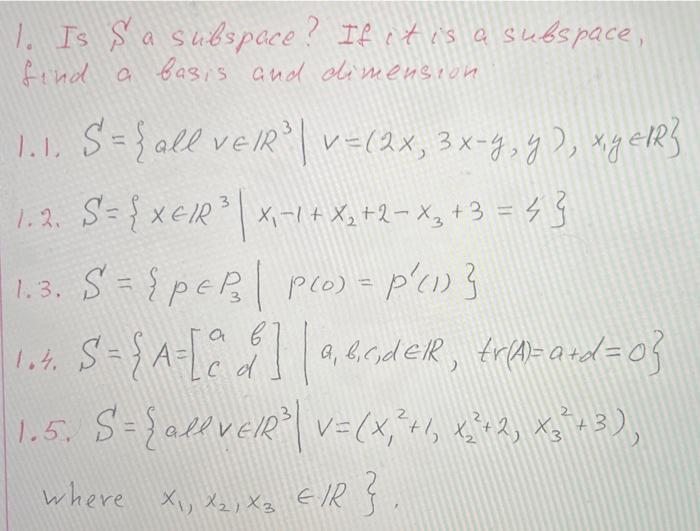 1. Is S a subspace? If it is a subspace,
find a basis and dimension
1.1. S={all v∈ℝ³ | v=(2x, 3x-y, y), x,y∈ℝ}
1.2. S={x∈ℝ³ | x₁-1+x₂+2-x₃+3=4}
1.3. S={p∈P₃ | p(0)=p'(1)}
1.4. S={A=[a b
c d] | a,b,c,d∈ℝ, tr(A)=a+d=0}
1.5. S={all v∈ℝ³ | v=(x₁²+1, x₂²+2, x₃²+3),
where x₁, x₂, x₃ ∈ℝ}.